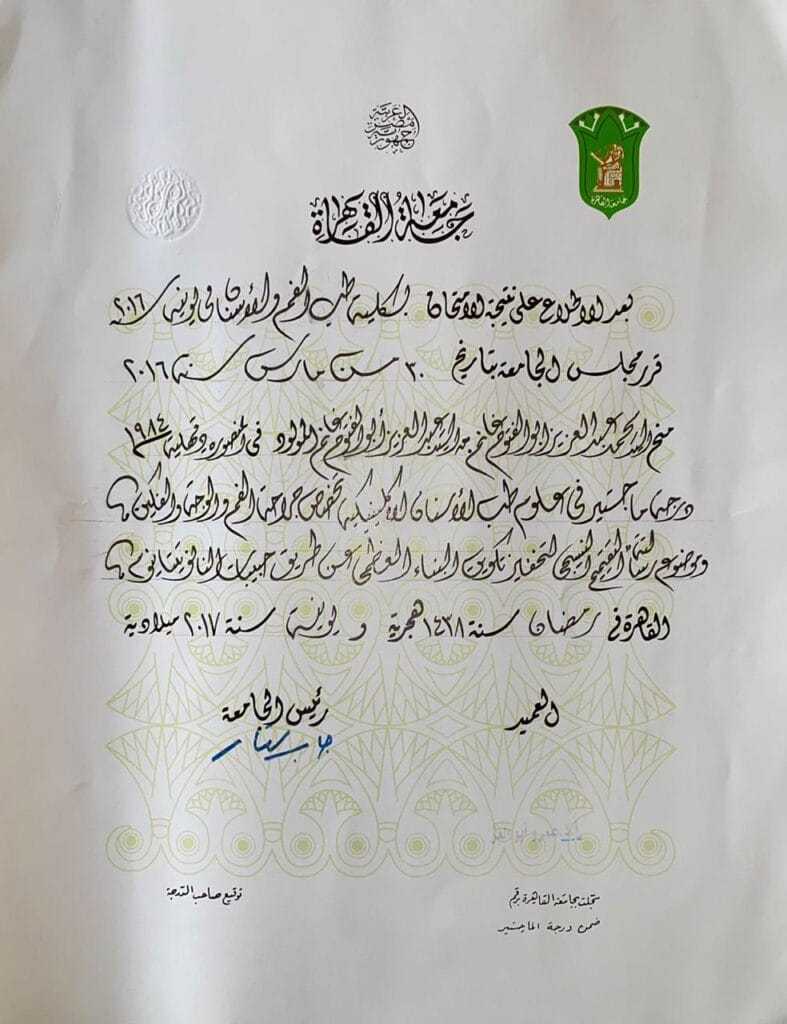 جمهورية مصر العربية
جامعة القاهرة
جامعة القاهرة
بعد الاطلاع على نتيجة الامتحان لكلية طب الفم والأسنان فى يونيه سنة ٢٠١٦
قرر مجلس الجامعة بتاريخ ٣٠ من مارس سنة ٢٠١٦
منح السيد محمد عبد العزيز أبو الفتوح غانم بن السيد عبد العزيز أبو الفتوح غانم المولود فى المنصورة دقهلية ١٩٨٤
درجة ماجستير فى علوم طب الأسنان الاكلينيكية تخصص جراحة الفم والوجه والفكين
وموضوع رسالته التقييم النسيجى لتحفيز تكوين البناء العظمى عن طريق حبيبات النانو تيتانيوم
القاهرة فى رمضان سنة ١٤٣٨ هجرية و يونية سنة ٢٠١٧ ميلادية
العميد رئيس الجامعة
جابر نصار
أ.د. عمرو أبو العز
سجلت بجامعة القاهرة برقم توقيع صاحب الدرجة
ضمن درجة الماجستير